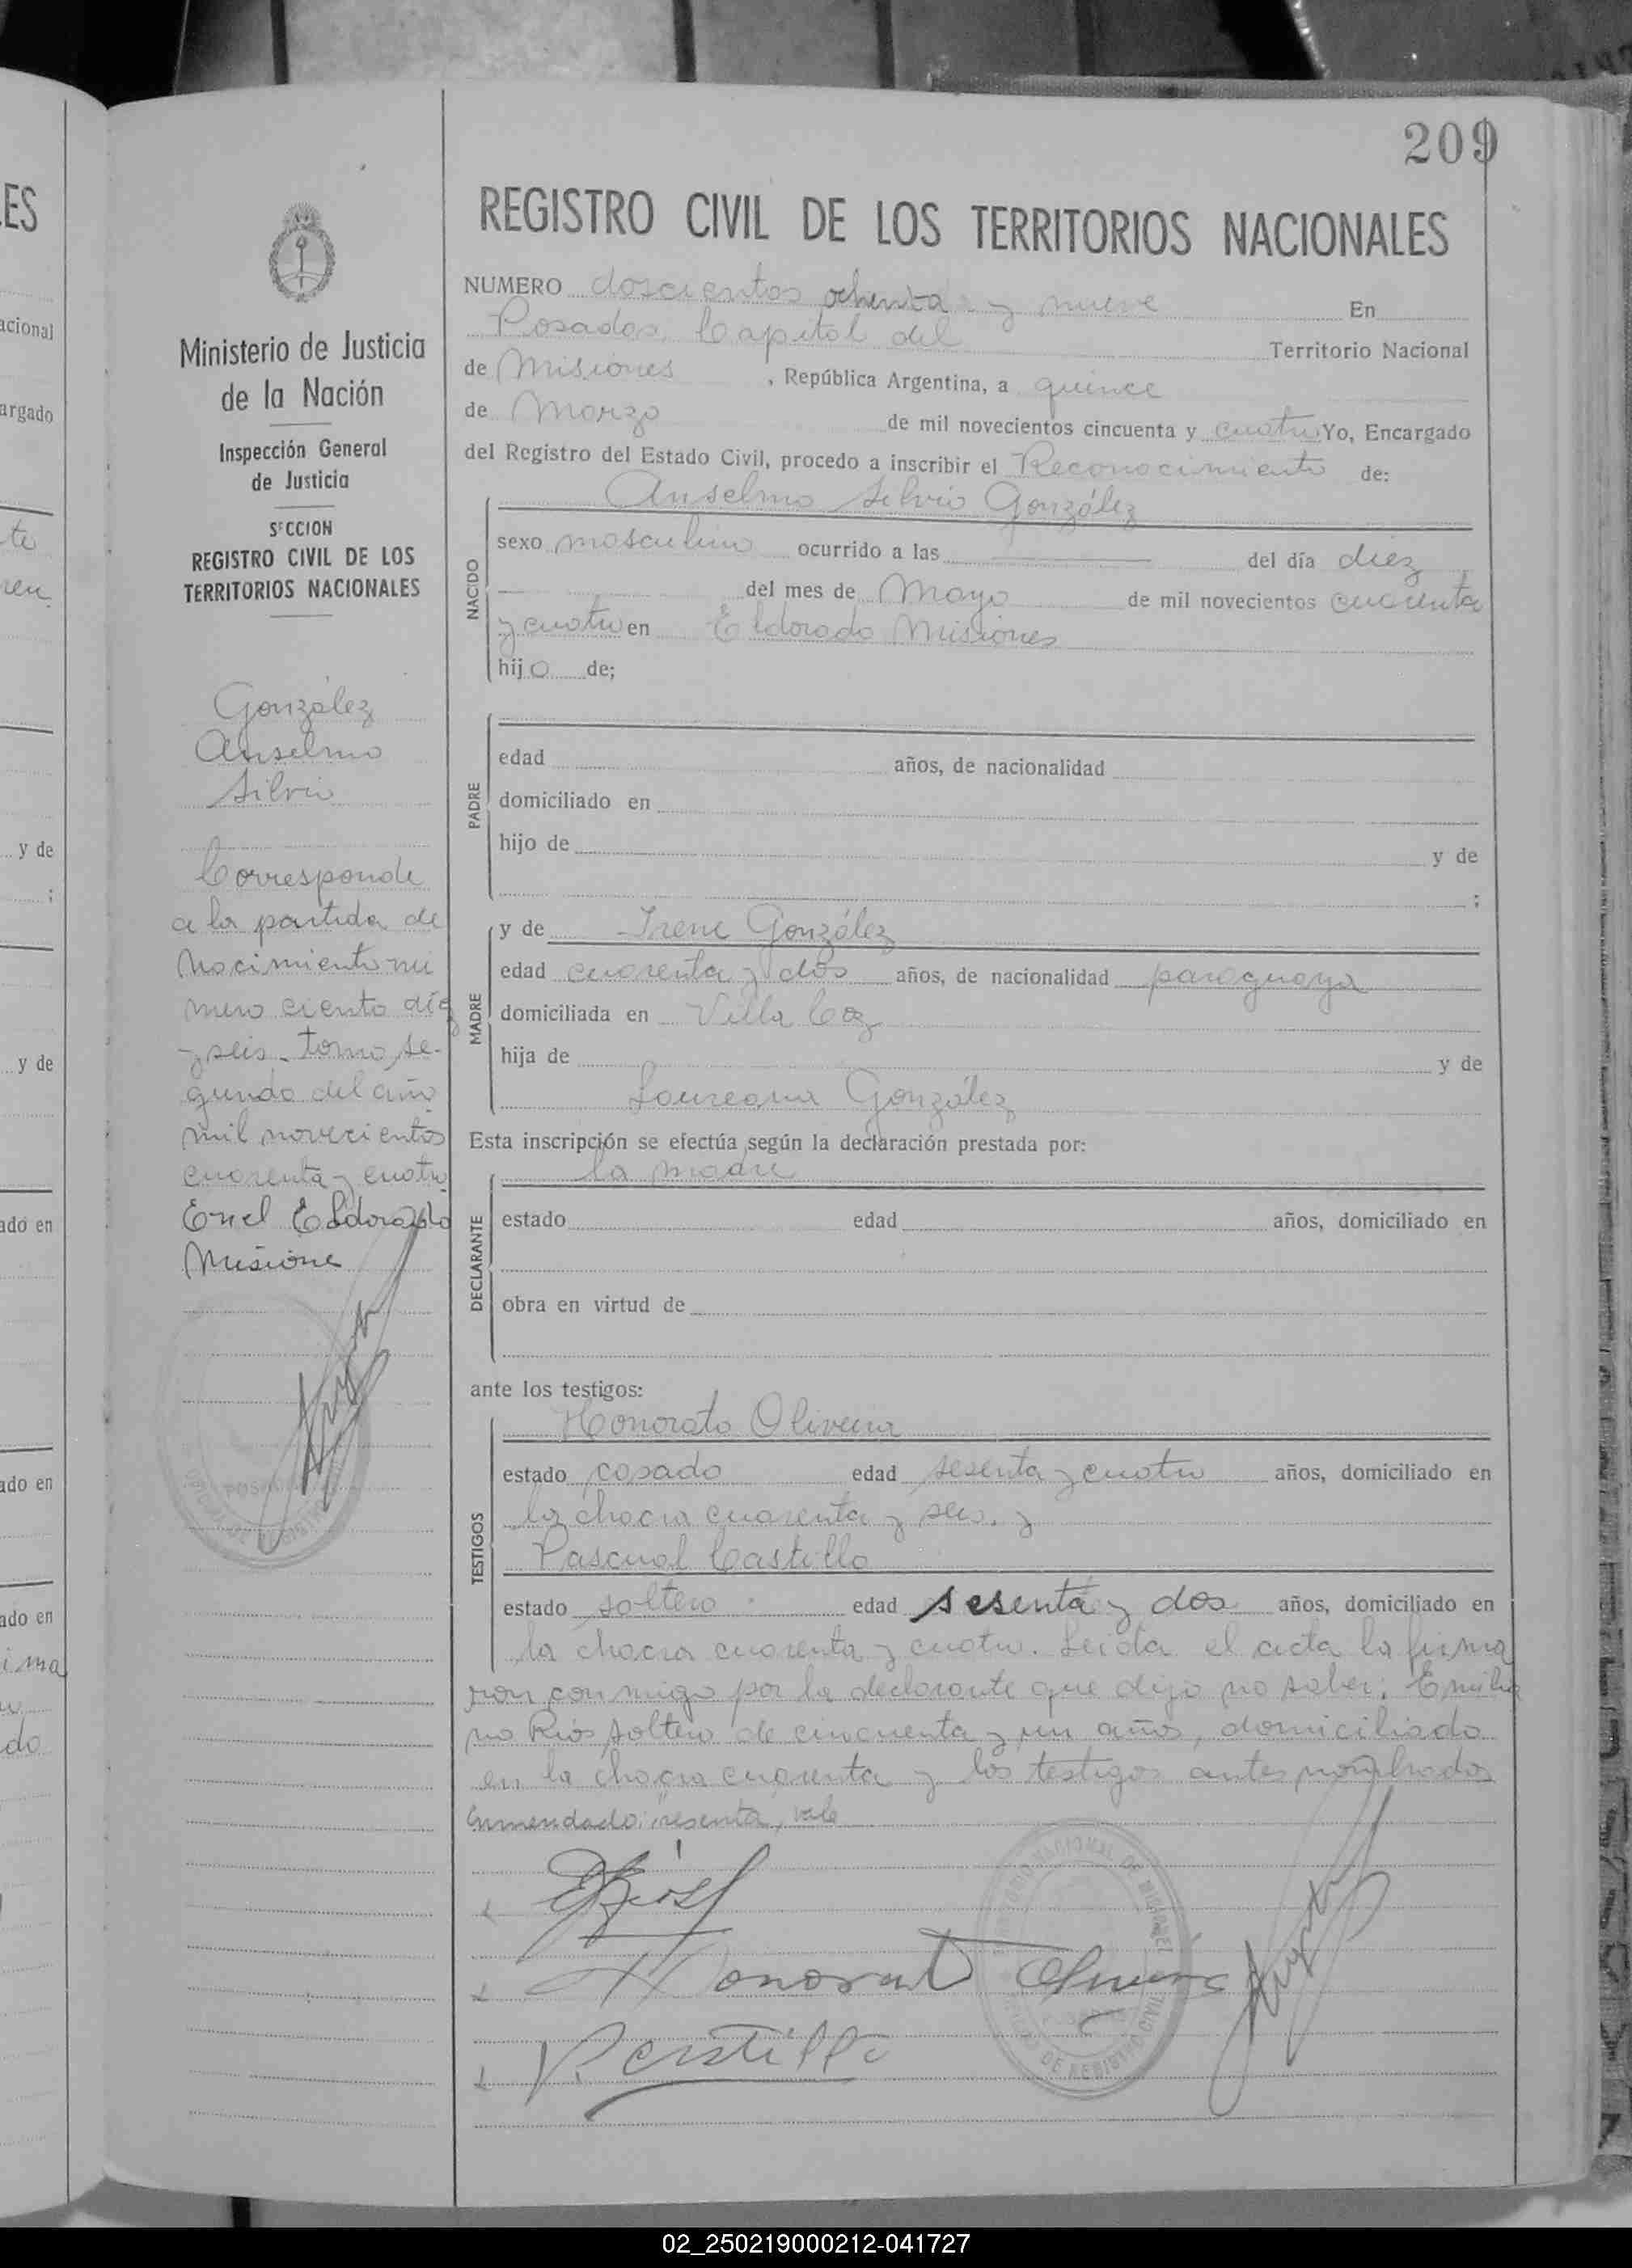 209
ES
REGISTRO CIVIL DE LOS TERRITORIOS NACIONALES
NUMERO doscientos ochenta y nueve En
Posadas Capital del Territorio Nacional
de Misiones, República Argentina, a quince
de Marzo de mil novecientos cincuenta y cuatro Yo, Encargado
del Registro del Estado Civil, procedo a inscribir el Reconocimiento de:
Anselmo Silvio González
NACIDO
sexo masculino ocurrido a las del día diez
del mes de Mayo de mil novecientos cuarenta
y cuatro en Eldorado Misiones
hijo de;
PADRE
edad años, de nacionalidad
domiciliado en
hijo de y de
;
MADRE
y de Irene González
edad cuarenta y dos años, de nacionalidad paraguaya
domiciliada en Villa Coz
hija de y de
Laureana González
Esta inscripción se efectúa según la declaración prestada por:
la madre
DECLARANTE
estado edad años, domiciliado en
obra en virtud de
ante los testigos:
TESTIGOS
Honorato Oliveira
estado casado edad sesenta y cuatro años, domiciliado en
la chacra cuarenta y seis. y
Pascual Castillo
estado soltero edad sesenta y dos años, domiciliado en
la chacra cuarenta y cuatro. Leida el acta la firma
ron conmigo por la declarante que dijo no saber: Emilia
no Rios soltero de cincuenta y un años, domiciliado
en la chacra cuarenta y los testigos antes nombrados
Enmendado: "sesenta, vale
ERios
Honorat
P. Castillo
TERRITORIO NACIONAL DE MISIONES
Ministerio de Justicia
de la Nación
Inspección General
de Justicia
SECCION
REGISTRO CIVIL DE LOS
TERRITORIOS NACIONALES
González
Anselmo
Silvio
Corresponde
a la partida de
Nacimiento nu
mero ciento diez
y seis - tomo se-
gundo del año
mil novecientos
cuarenta y cuatro
En el Eldorado
Misione
POSADAS
acional
argado
te
ren.
y de
;
y de
ado en
ado en
ado en
ima
do
02_250219000212-041727